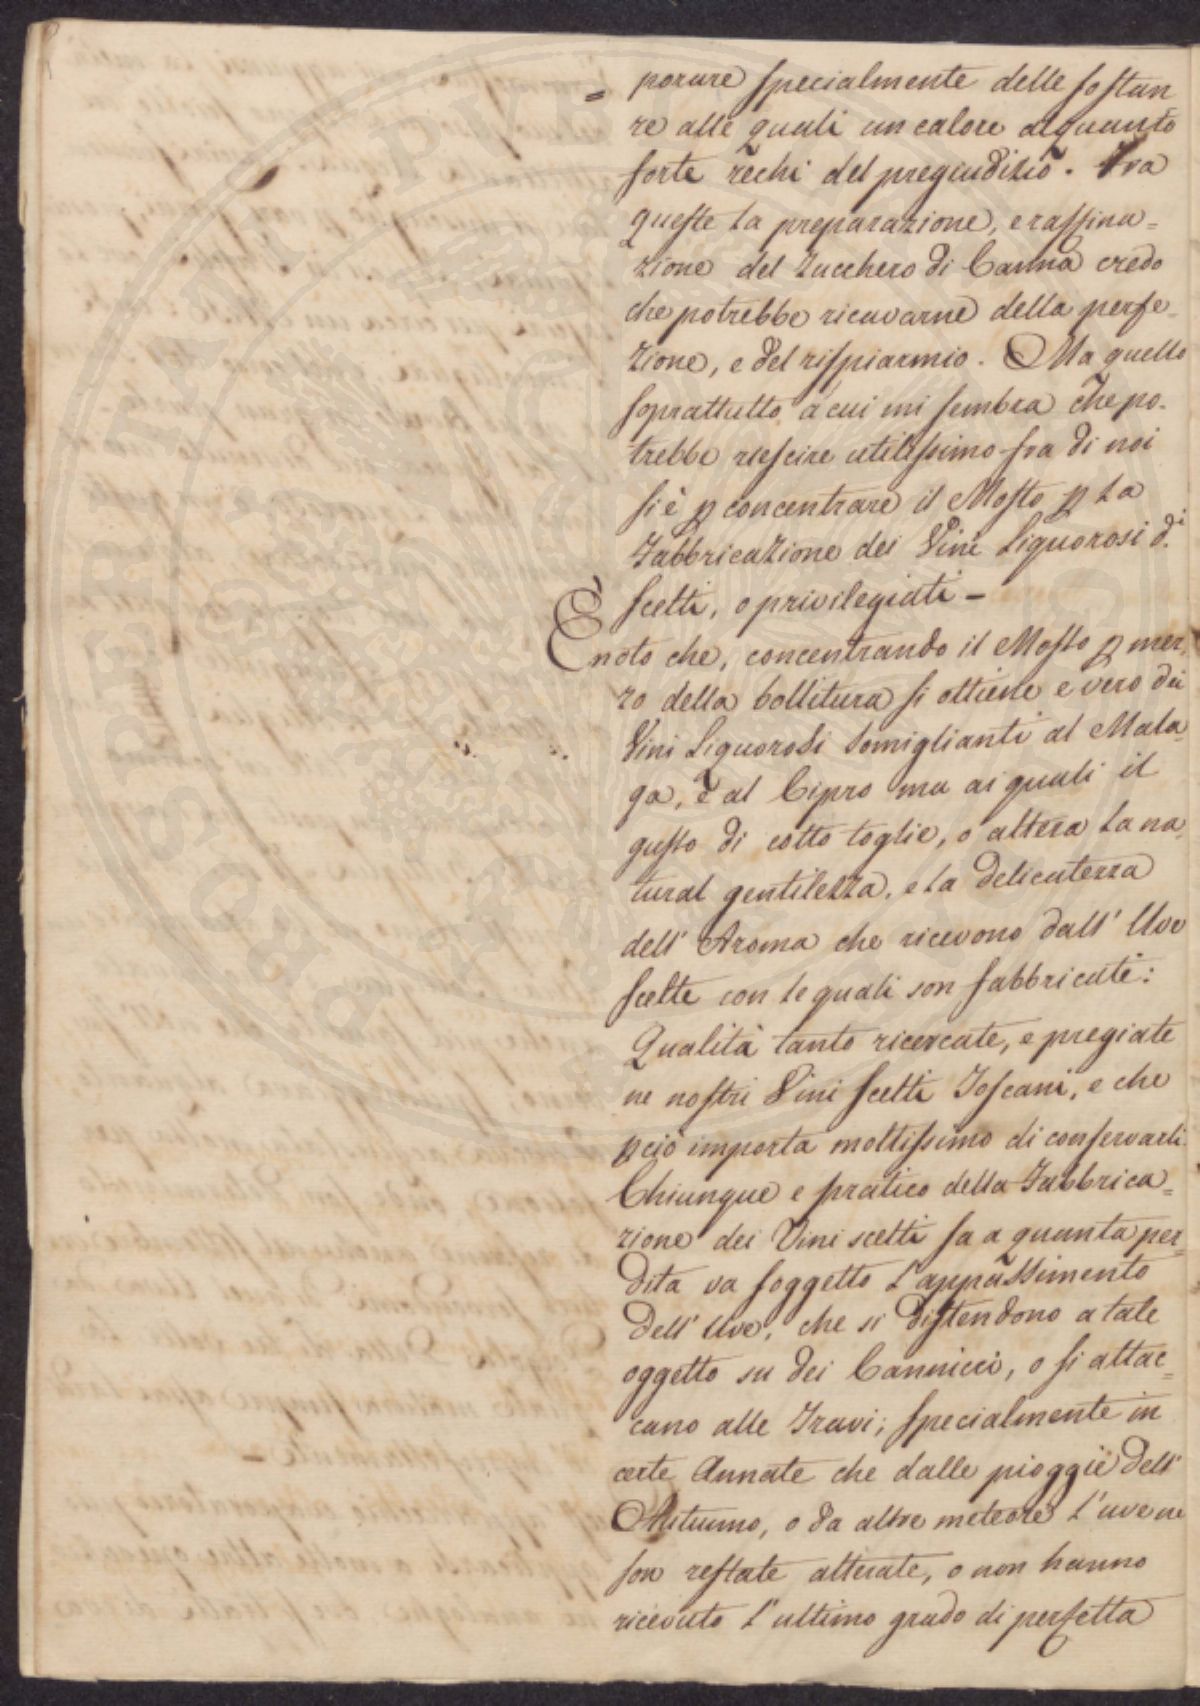 = porare specialmente delle sostan
ze alle quali un calore alquanto
forte rechi del pregiudizio. Fra
queste la preparazione, e raffina=
zione del Zucchero di Canna credo
che potrebbe ricavarne della perfe=
zione, e del risparmio. Ma quello
soprattutto a cui mi sembra che po-
trebbe riescire utilissimo fra di noi
si è p concentrare il Mosto p la
Fabbricazione dei Vini Liquorosi d.i
scelti, o privilegiati -
È noto che, concentrando il Mosto p mez
zo della bollitura si ottiene e vero dei
Vini Liquorosi somiglianti al Mala=
ga, e al Cipro ma ai quali il
gusto di cotto toglie, o altera la na=
tural gentilezza, e la delicatezza
dell' Aroma che ricevono dall' Uve
scelte con le quali son fabbricati:
Qualità tanto ricercate, e pregiate
ne nostri Vini scelti Toscani, e che
pciò importa moltissimo di conservarli
Chiunque e pratico della Fabbrica=
zione dei Vini scelti sa a quanta per=
dita va soggetto l'appassimento
dell' Uve, che si distendono a tale
oggetto su dei Cannicci, o si attac=
cano alle Travi; specialmente in
certe Annate che dalle pioggie dell'
Autunno, o da altre meteore l'uve ne
son restate alterate, o non hanno
ricevuto l'ultimo grado di perfetta
PROSPERITATI PVBL